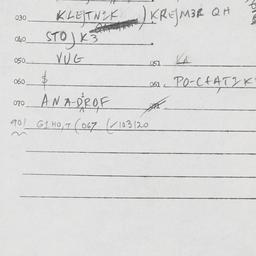 030 KLEJTNZK ) KREJM3R QH
040 STOJK3
050 VUG 051 KA
060 $ 061. PO-CHATZK
070 ANA-DROF
901 G1HO,T (067 (103120